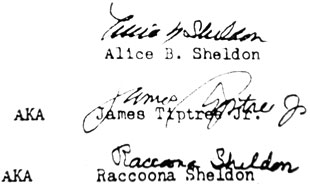 Alice B Sheldon
Alice B. Sheldon
James Tiptree Jr
AKA James Tiptree Jr.
Raccoona Sheldon
AKA Raccoona Sheldon